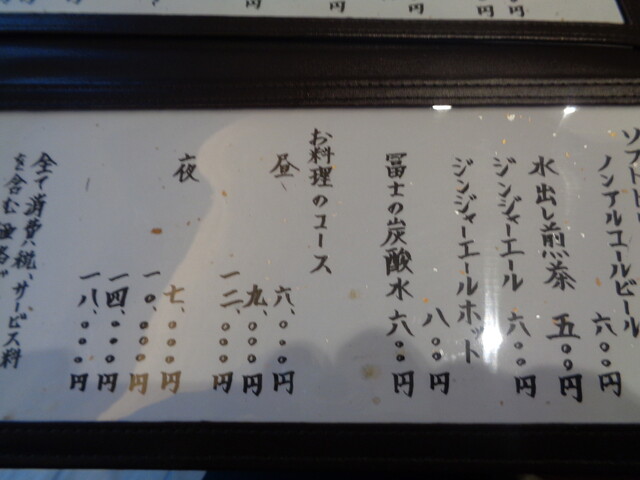 ソフトドリ
ノンアルコールビール 六〇〇円
水出し煎茶 五〇〇円
ジンジャーエール 六〇〇円
ジンジャーエールホット 八〇〇円
冨士の炭酸水 六〇〇円
お料理のコース
昼、 六、〇〇〇円
九、〇〇〇円
一二、〇〇〇円
夜 七、〇〇〇円
一〇、〇〇〇円
一四、〇〇〇円
一八、〇〇〇円
全て消費税、サービス料
を含む価格